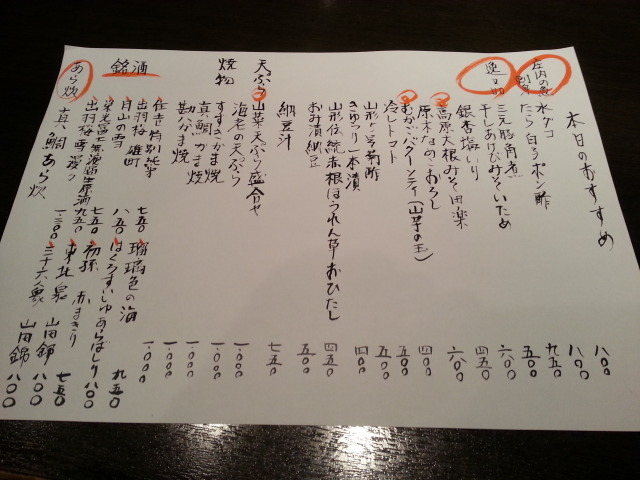 本日のおすすめ
庄内の魚 水ダコ 八〇〇
たら白子ポン酢 八〇〇
九五〇
逸品
三元豚角煮 五〇〇
干しあけびみそいため 六〇〇
銀杏塩いり 四五〇
高原大根みそ田楽 六〇〇
原木なめこおろし 四〇〇
むかごバターソティ(山芋の玉) 五〇〇
冷しトマト 五〇〇
山形 もって菊酢 四〇〇
きゅうり一本漬
山形伝統赤根ほうれん草おひたし 四五〇
おみ漬納豆 五〇〇
納豆汁 七五〇
天ぷら
山菜天ぷら盛合せ 一.〇〇〇
海老の天ぷら 一.〇〇〇
焼物
すずきかま焼 一.〇〇〇
真鯛かま焼 一.〇〇〇
勘八かま焼 一.〇〇〇
銘酒
住吉 特別純米 七五〇
出羽桜 雄町 八五〇
月山の雪 七五〇
栄光冨士 無濾過生原酒 九五〇
出羽桜 雪漫々 一.三〇〇
瑠璃色の海
はくろすいしゅあらばしり 九五〇
初孫 赤まきり 八〇〇
東北泉 山田錦 七五〇
三十六人衆 山田錦 八〇〇
あら炊
真鯛あら炊 八〇〇